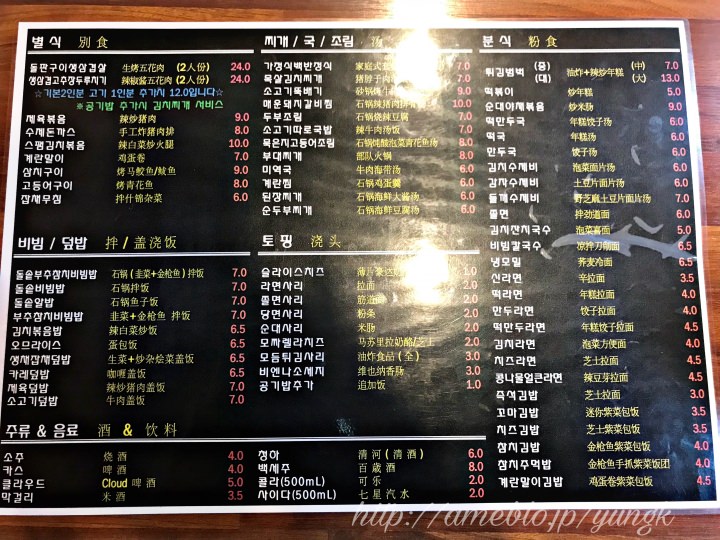 별식 别食
돌판구이생삼겹살 生烤五花肉 (2人份) 24.0
생삼겹고추장두루치기 辣椒酱五花肉 (2人份) 24.0
☆기본2인분 고기 1인분 추가시 12.0입니다☆
*공기밥 추가시 김치찌개 서비스
제육볶음 辣炒猪肉 9.0
수제돈까스 手工炸猪肉排 8.0
스팸김치볶음 辣白菜炒火腿 10.0
계란말이 鸡蛋卷 7.0
삼치구이 烤马鲛鱼/鲅鱼 9.0
고등어구이 烤青花鱼 8.0
잡채무침 拌什锦杂菜 6.0
비빔/덮밥 拌/盖浇饭
돌솥부추참치비빔밥 石锅(韭菜+金枪鱼)拌饭 7.0
돌솥비빔밥 石锅拌饭 7.0
돌솥알밥 石锅鱼子饭 7.0
부추참치비빔밥 韭菜+金枪鱼 拌饭 7.0
김치볶음밥 辣白菜炒饭 6.5
오므라이스 蛋包饭 6.5
생채잡채덮밥 生菜+炒杂烩菜盖饭 6.5
카레덮밥 咖喱盖饭 6.5
제육덮밥 辣炒猪肉盖饭 7.0
소고기덮밥 牛肉盖饭 7.0
주류 & 음료 酒 & 饮料
소주 烧酒 4.0
카스 啤酒 4.0
클라우드 Cloud 啤酒 5.0
막걸리 米酒 3.5
찌개/국/조림 汤
가정식백반정식 家庭式 7.0
목살김치찌개 猪脖子肉 8.0
소고기뚝배기 砂锅烤牛 9.0
매운돼지갈비찜 石锅辣猪肉排骨 10.0
두부조림 石锅烧辣豆腐 7.0
소고기따로국밥 辣牛肉汤饭 7.0
묵은지고등어조림 石锅炖酸泡菜青花鱼汤 8.0
부대찌개 部队火锅 8.0
미역국 牛肉海带汤 6.0
계란찜 石锅鸡蛋羹 6.0
된장찌개 石锅海鲜大酱汤 6.0
순두부찌개 石锅海鲜豆腐汤 6.0
토핑 浇头
슬라이스치즈 薄片 1.0
라면사리 拉面 2.0
쫄면사리 筋道面 2.0
당면사리 粉条 2.0
순대사리 米肠 2.0
모짜렐라치즈 马苏里拉奶酪/芝士 2.0
모둠튀김사리 油炸食品(全) 3.0
비엔나소세지 维也纳香肠 3.0
공기밥추가 追加饭 1.0
청하 清河(清酒) 6.0
백세주 百岁酒 8.0
콜라(500mL) 可乐 2.0
사이다(500mL) 七星汽水 2.0
분식 粉食
튀김범벅 (중) 油炸+辣炒年糕 (中) 7.0
(대) (大) 13.0
떡볶이 炒年糕 5.0
순대야채볶음 炒米肠 9.0
떡만두국 年糕饺子汤 6.0
떡국 年糕汤 6.0
만두국 饺子汤 6.0
김치수제비 泡菜面片汤 6.0
감자수제비 土豆片面片汤 6.0
들깨수제비 野芝麻土豆片面片汤 6.0
쫄면 拌劲道面 6.0
김치잔치국수 泡菜喜面 5.0
비빔칼국수 凉拌刀削面 6.5
냉모밀 荞麦冷面 6.5
신라면 辛拉面 3.5
떡라면 年糕拉面 4.0
만두라면 饺子拉面 4.0
떡만두라면 年糕饺子拉面 4.5
김치라면 泡菜方便面 4.0
치즈라면 芝士拉面 4.5
콩나물얼큰라면 辣豆芽拉面 4.5
즉석김밥 芝士拉面 3.0
꼬마김밥 迷你紫菜包饭 3.5
치즈김밥 芝士紫菜包饭 3.5
참치김밥 金枪鱼紫菜包饭 4.0
참치주먹밥 金枪鱼手抓紫菜饭团 4.0
계란말이김밥 鸡蛋卷紫菜包饭 4.5
http://ameblo.jp/yungk